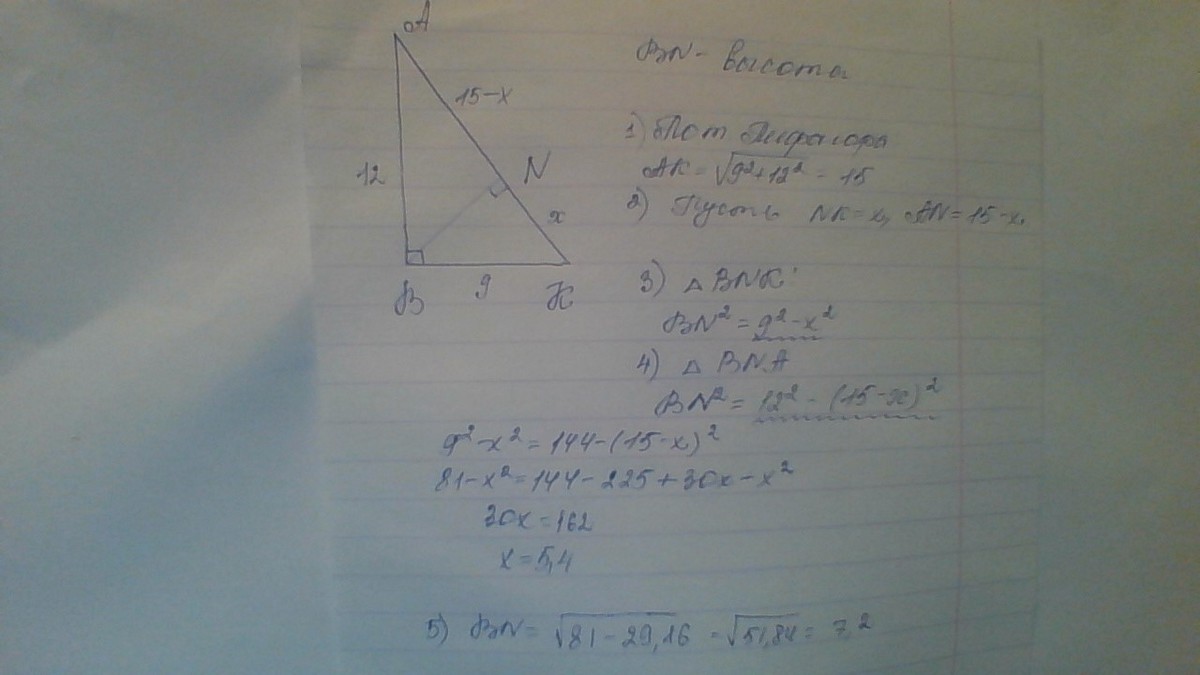 A
15-x
12
N
x
B
9
K
BN - высота
1) По т Пифагора
AK = √9²+12² = 15
2) Пусть NK=x, AN=15-x.
3) △ BNK
BN² = 9²-x²
4) △ BNA
BN² = 12² - (15-x)²
9²-x² = 144-(15-x)²
81-x² = 144-225+30x-x²
30x = 162
x = 5,4
5) BN = √81-29,16 = √51,84 = 7,2